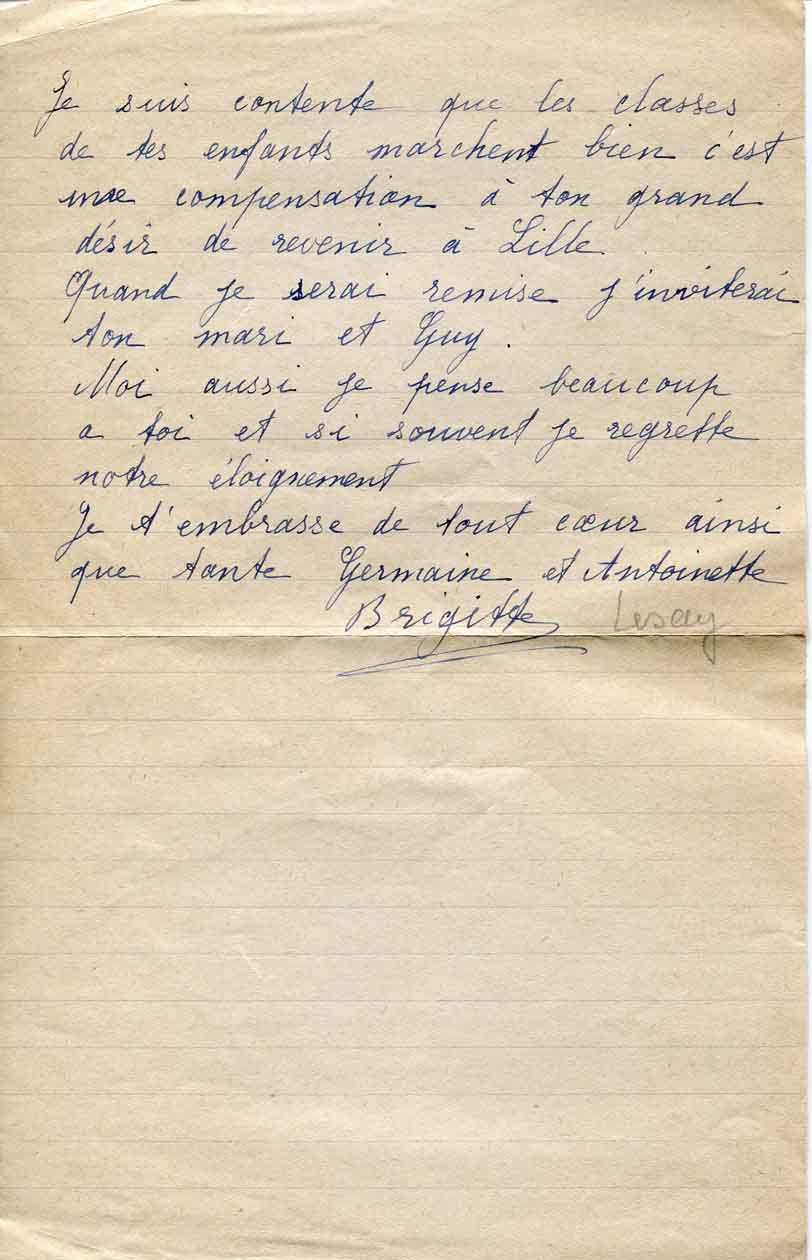 Je suis contente que les classes
de tes enfants marchent bien c'est
une compensation à ton grand
désir de revenir à Lille.
Quand je serai remise j'inviterai
ton mari et Guy.
Moi aussi je pense beaucoup
a toi et si souvent je regrette
notre éloignement
Je t'embrasse de tout cœur ainsi
que tante Germaine et Antoinette
Brigitte